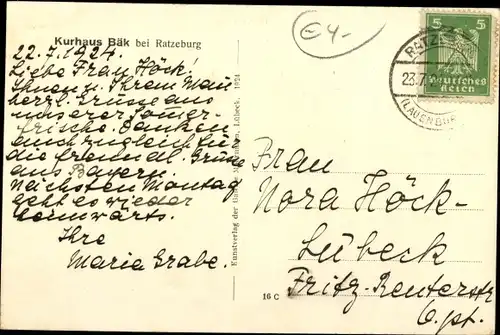 Kurhaus Bäk bei Ratzeburg
22.7.1924.
Liebe Frau Höck!
Ihnen u. Ihrem Man
herzl. Grüsse aus
unserer Somer-
frische. Danken
auch zugleich für
die freundl. Grüsse
aus Bayern.
Nächsten Montag
geht es wieder
heimwärts.
Ihre
Maria Grabe.
Kunstverlag der Lübeck. 1924
16 C
E4-
RATZE
23.7.
(LAUENBUR
5 5
Deutsches
Reich
Frau
Nora Höck-
Lübeck
Fritz-Reuterstr
6. pt.